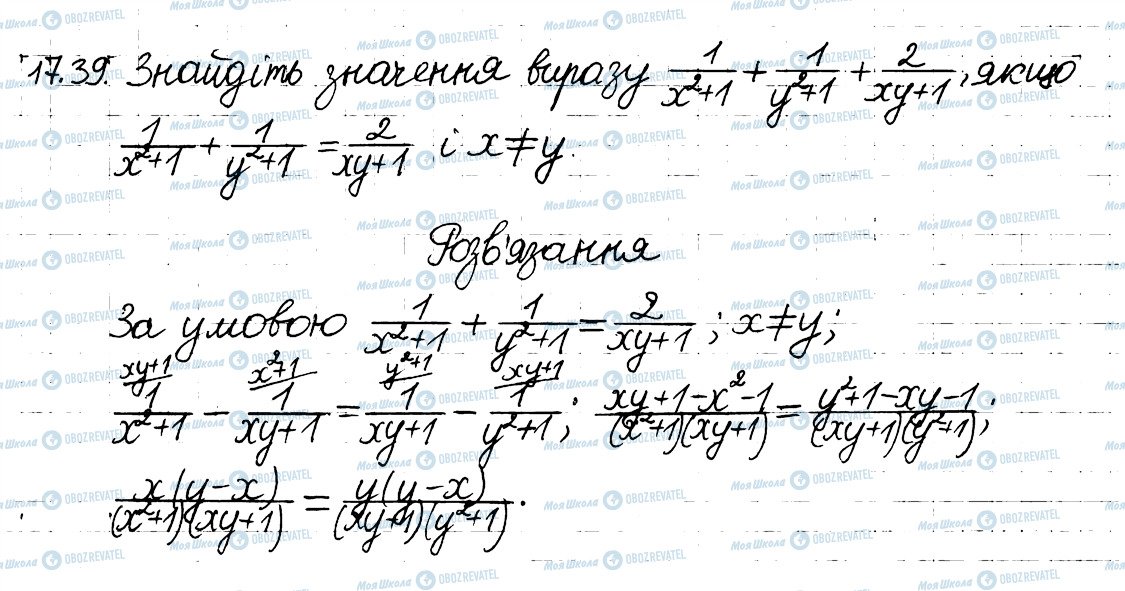 17.39. Знайдіть значення виразу 1/(x²+1) + 1/(y²+1) + 2/(xy+1), якщо
1/(x²+1) + 1/(y²+1) = 2/(xy+1) і x≠y.
Розв'язання
За умовою 1/(x²+1) + 1/(y²+1) = 2/(xy+1); x≠y;
xy+1 x²+1 y²+1 xy+1
1/(x²+1) − 1/(xy+1) = 1/(xy+1) − 1/(y²+1); (xy+1−x²−1)/((x²+1)(xy+1)) = (y²+1−xy−1)/((xy+1)(y²+1));
x(y−x)/((x²+1)(xy+1)) = y(y−x)/((xy+1)(y²+1)).
Моя Школа OBOZREVATEL